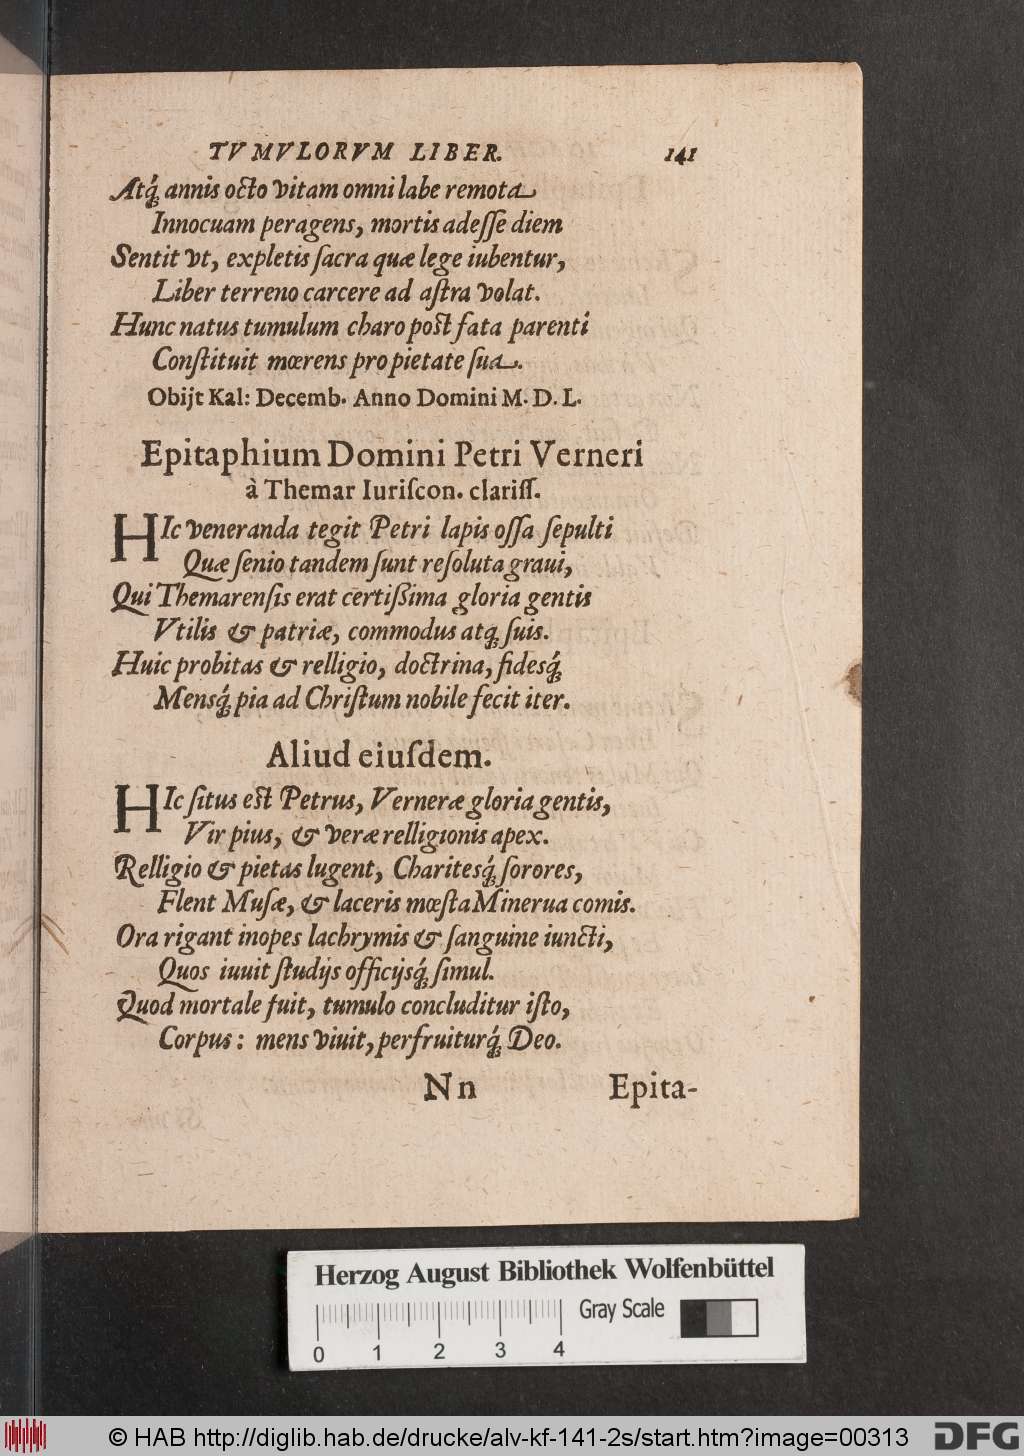 TVMVLORVM LIBER. 141
Atq́ annis octo vitam omni labe remota
Innocuam peragens, mortis adeſſe diem
Sentit vt, expletis ſacra quæ lege iubentur,
Liber terreno carcere ad aſtra volat.
Hunc natus tumulum charo poſt fata parenti
Conſtituit mœrens pro pietate ſua.
Obijt Kal: Decemb. Anno Domini M. D. L.
Epitaphium Domini Petri Verneri
à Themar Iuriſcon. clariſſ.
HIc veneranda tegit Petri lapis oſſa ſepulti
Quæ ſenio tandem ſunt reſoluta graui,
Qui Themarenſis erat certißima gloria gentis
Vtilis & patriæ, commodus atq́ ſuis.
Huic probitas & relligio, doctrina, fidesq́
Mensq́ pia ad Chriſtum nobile fecit iter.
Aliud eiuſdem.
HIc ſitus eſt Petrus, Verneræ gloria gentis,
Vir pius, & veræ relligionis apex.
Relligio & pietas lugent, Charitesq́ ſorores,
Flent Muſæ, & laceris mœſta Minerua comis.
Ora rigant inopes lachrymis & ſanguine iuncti,
Quos iuuit ſtudijs officijsq́ ſimul.
Quod mortale fuit, tumulo concluditur iſto,
Corpus: mens viuit, perfruiturq́ Deo.
Nn Epita-
Herzog August Bibliothek Wolfenbüttel
Gray Scale
0 1 2 3 4
© HAB http://diglib.hab.de/drucke/alv-kf-141-2s/start.htm?image=00313
DFG